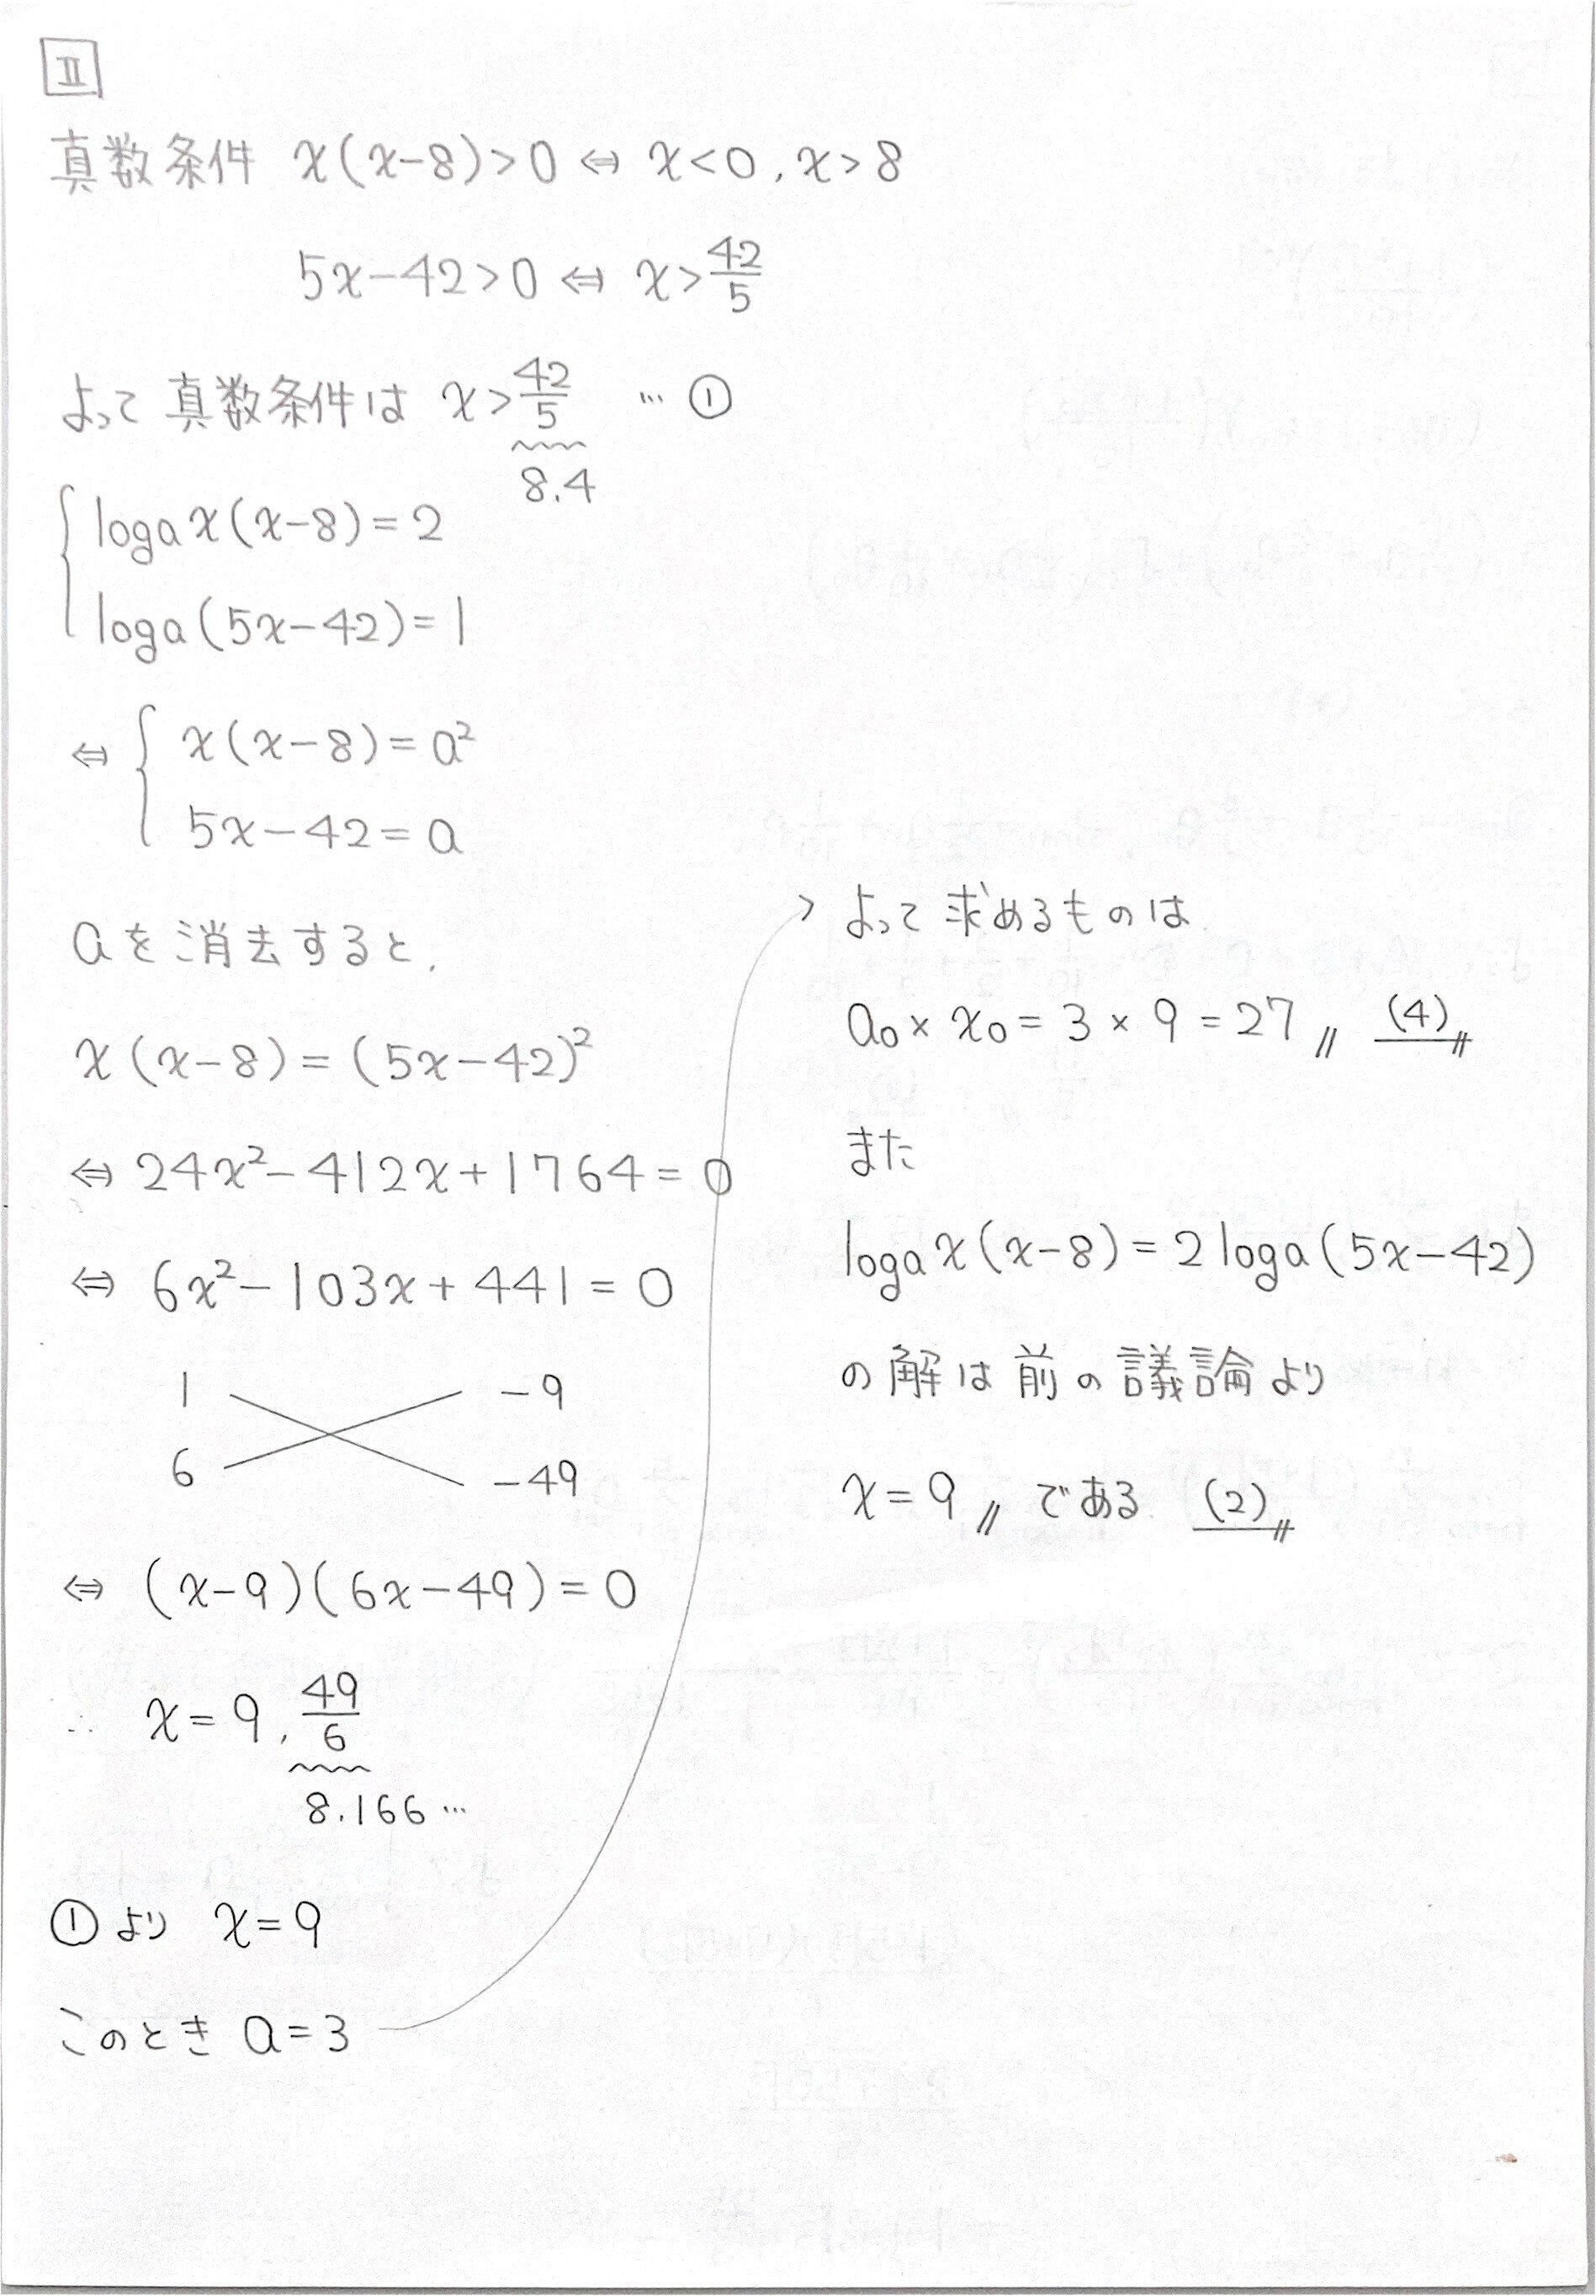 II
真数条件 x(x-8)>0 ⇔ x<0, x>8
5x-42>0 ⇔ x>42/5
よって真数条件は x>42/5 … ①
8.4
{ logₐx(x-8)=2
logₐ(5x-42)=1
⇔ { x(x-8)=a²
5x-42=a
aを消去すると,
x(x-8)=(5x-42)²
⇔ 24x²-412x+1764=0
⇔ 6x²-103x+441=0
1 -9
6 -49
⇔ (x-9)(6x-49)=0
∴ x=9, 49/6
8.166…
①より x=9
このとき a=3
よって求めるものは
a₀×x₀=3×9=27 〃 (4)〃
また
logₐx(x-8)=2logₐ(5x-42)
の解は前の議論より
x=9〃 である. (2)〃